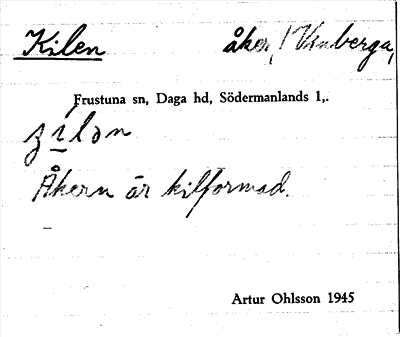 Kilen åker, / Vinberga,
Frustuna sn, Daga hd, Södermanlands l,.
Åkern är kilformad.
Artur Ohlsson 1945